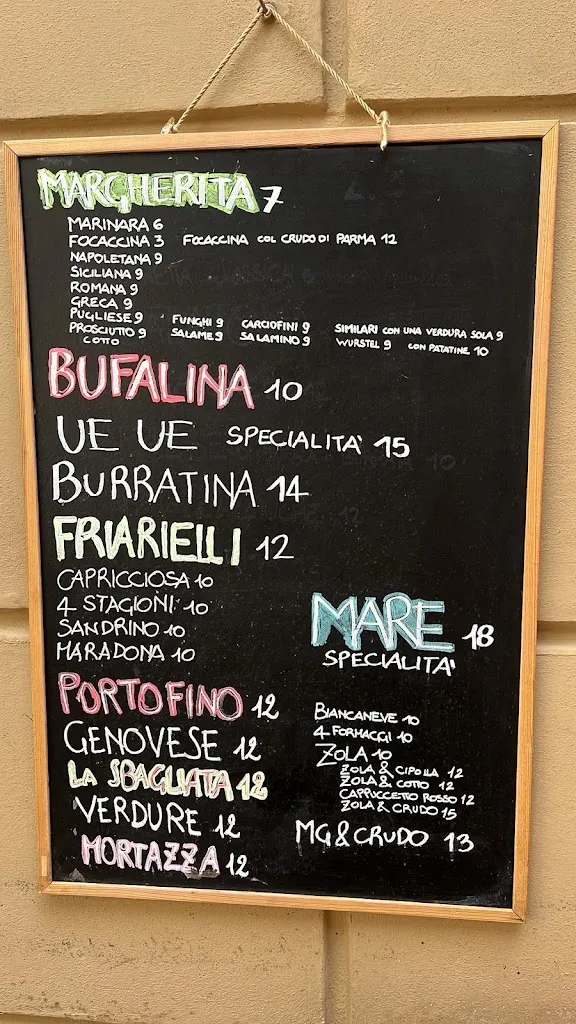 MARGHERITA 7
MARINARA 6
FOCACCINA 3 FOCACCINA COL CRUDO DI PARMA 12
NAPOLETANA 9
SICILIANA 9
ROMANA 9
GRECA 9
PUGLIESE 9 FUNGHI 9 CARCIOFINI 9 SIMILARI CON UNA VERDURA SOLA 9
PROSCIUTTO 9 SALAME 9 SALAMINO 9 WURSTEL 9 CON PATATINE 10
COTTO
BUFALINA 10
UE UE SPECIALITA' 15
BURRATINA 14
FRIARIELLI 12
CAPRICCIOSA 10
4 STAGIONI 10
SANDRINO 10
MARADONA 10
MARE 18
SPECIALITA'
PORTOFINO 12
GENOVESE 12
LA SBAGLIATA 12
VERDURE 12
MORTAZZA 12
BIANCANEVE 10
4 FORMAGGI 10
ZOLA 10
ZOLA & CIPOLLA 12
ZOLA & COTTO 12
CAPPUCCETTO ROSSO 12
ZOLA & CRUDO 15
MG & CRUDO 13